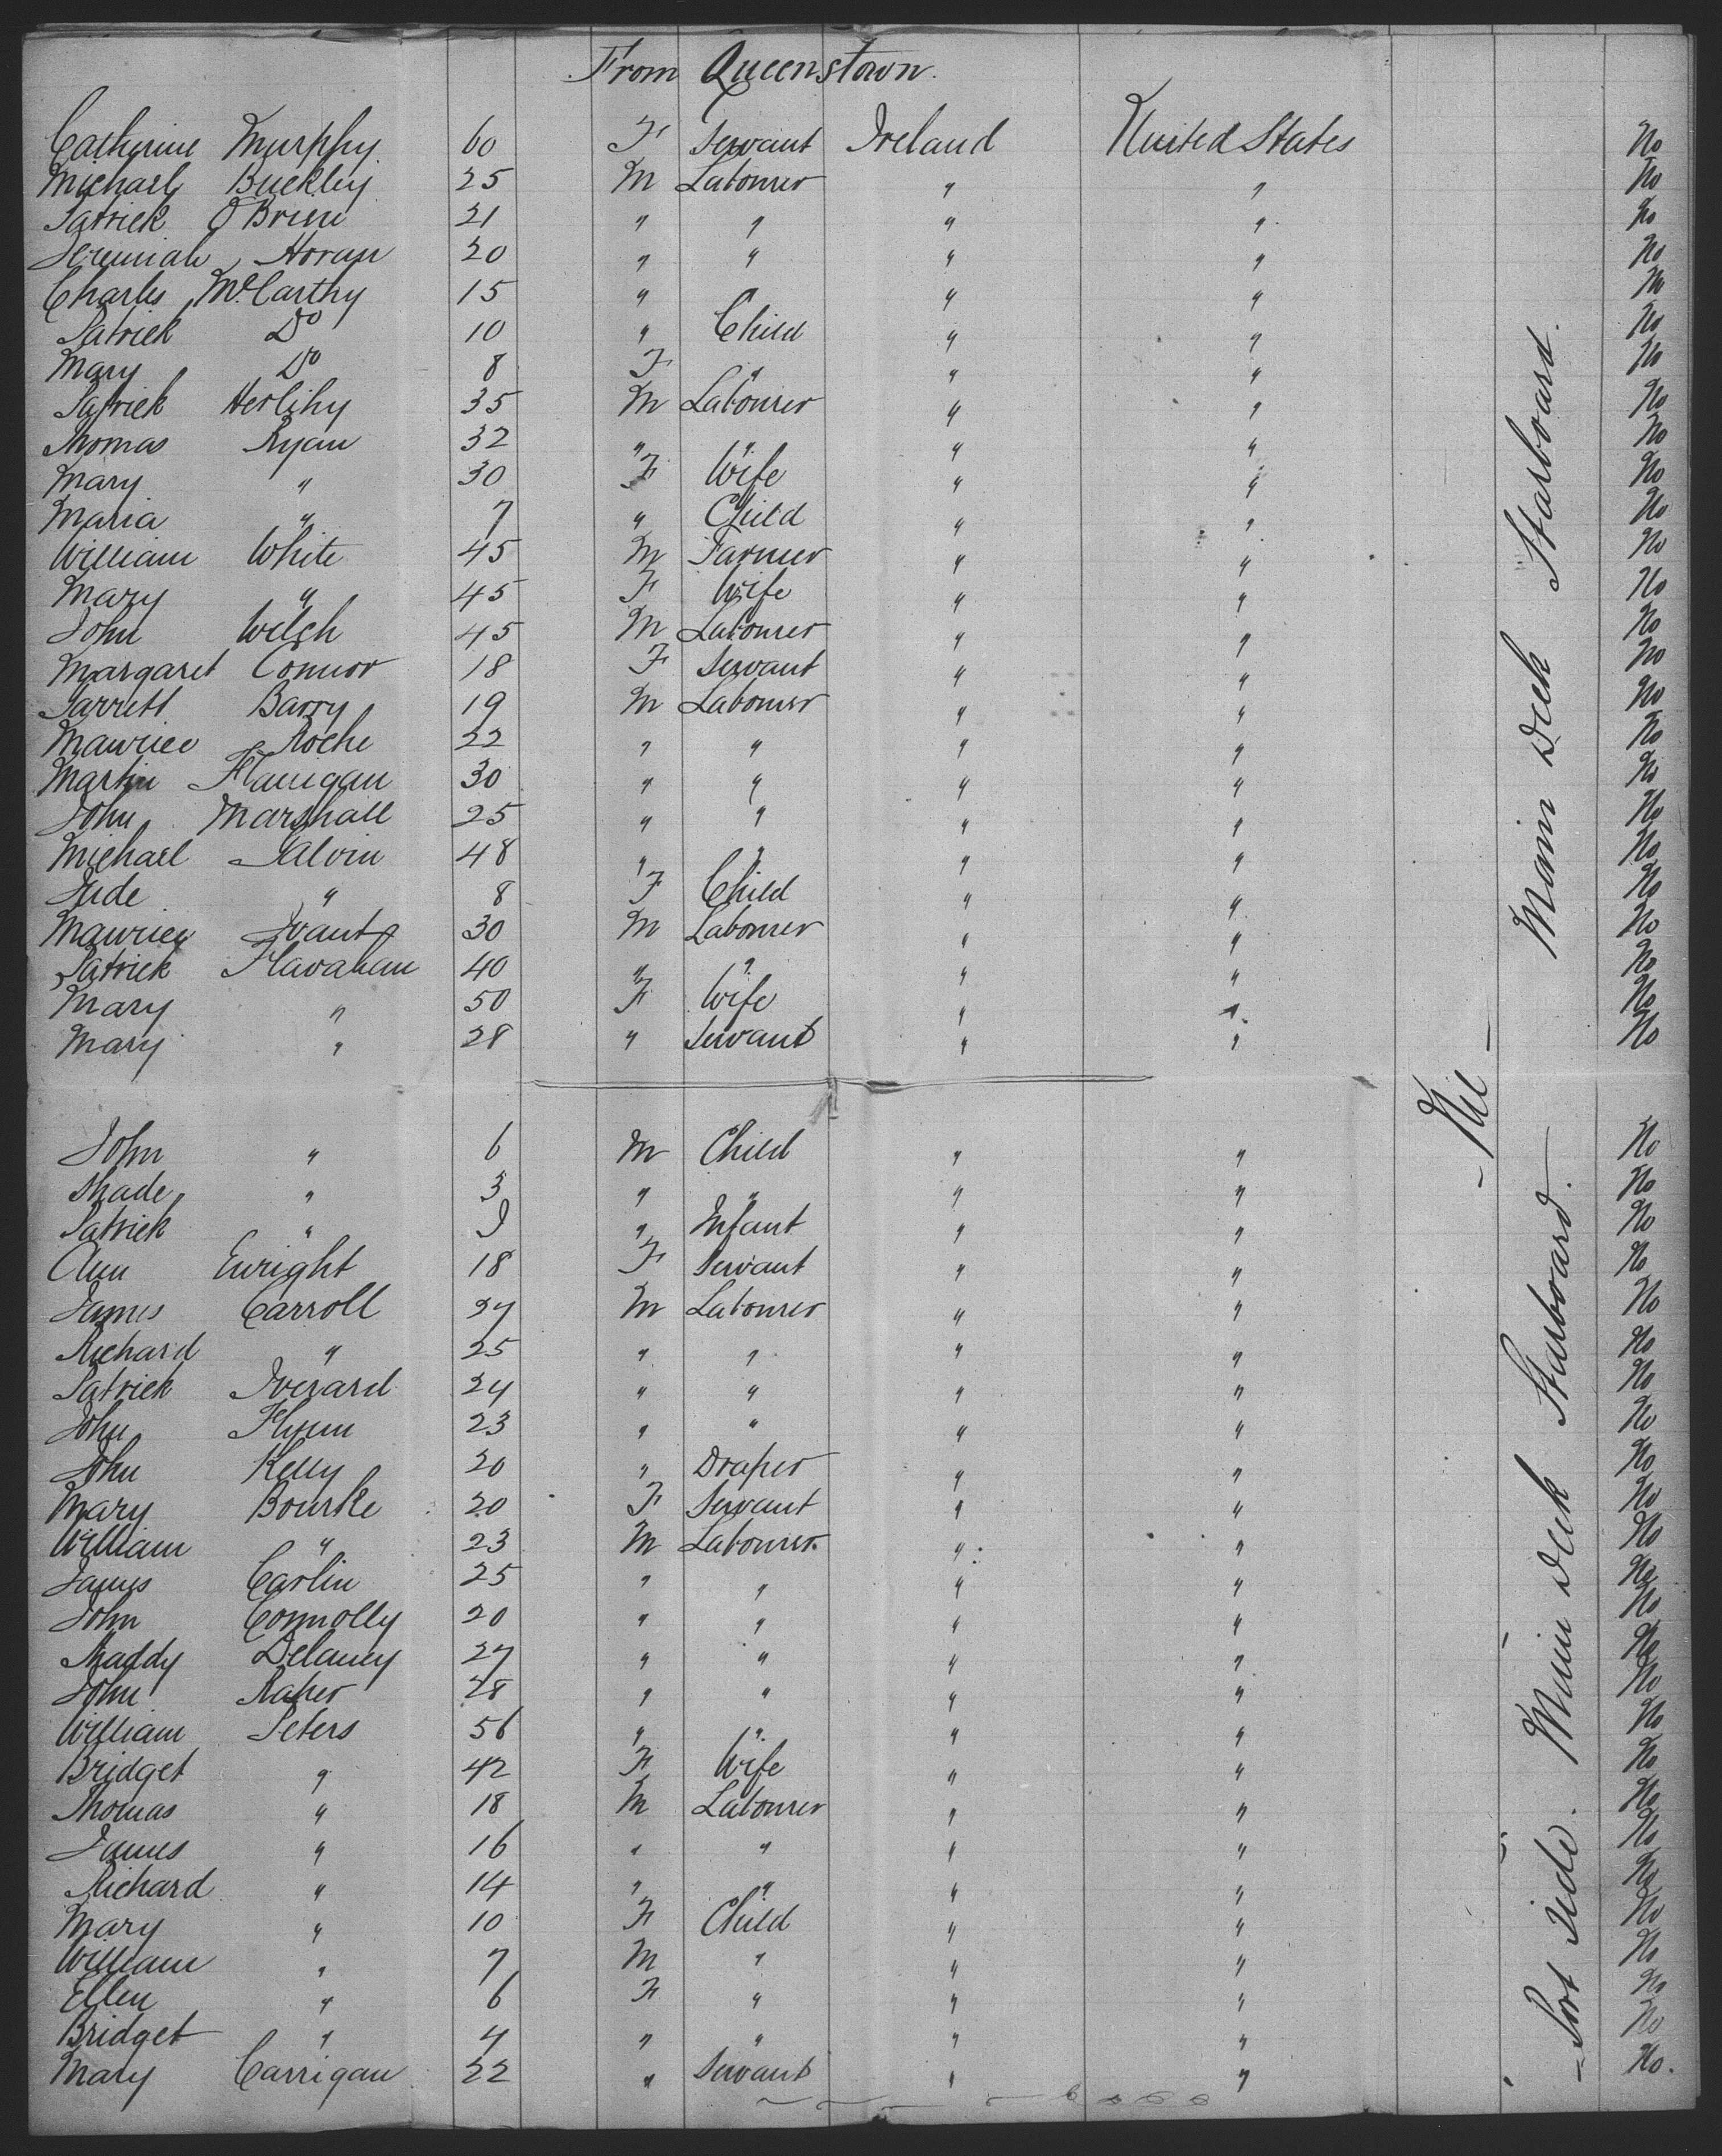 From Queenstown.
Catherine Murphy 60 F Servant Ireland United States No
Michael Buckley 25 M Labourer " " No
Patrick O'Brien 21 " " " " No
Jeremiah Horan 20 " " " " No
Charles McCarthy 15 " " " " No
Patrick Do 10 " Child " " No
Mary Do 8 F " " " No
Patrick Herlihy 35 M Labourer " " No
Thomas Ryan 32 " " " " No
Mary " 30 F Wife " " No
Maria " 7 " Child " " No
William White 45 M Farmer " " No
Mary " 45 F Wife " " No
John Welsh 45 M Labourer " " No
Margaret Connor 18 F Servant " " No
Garrett Barry 19 M Labourer " " No
Maurice Roche 22 " " " " No
Martin Flanigan 30 " " " " No
John Marshall 25 " " " " No
Michael Galvin 48 " " " " No
Jude " 8 F Child " " No
Maurice 30 M Labourer " " No
Patrick Flavahan 40 " " " " No
Mary " 50 F Wife " " No
Mary " 28 " Servant " " No
John " 6 M Child " " No
Thade " 3 " " " " No
Patrick " " Infant " " No
Ann Enright 18 F Servant " " No
James Carroll 27 M Labourer " " No
Richard " 25 " " " " No
Patrick 24 " " " " No
John Flynn 23 " " " " No
John Kelly 20 " Draper " " No
Mary Bourke 20 F Servant " " No
William " 23 M Labourer " " No
James Carlin 25 " " " " No
John Connolly 20 " " " " No
Thaddy Delaney 27 " " " " No
John Raher 28 " " " " No
William Peters 56 " " " " No
Bridget " 42 F Wife " " No
Thomas " 18 M Labourer " " No
James " 16 " " " " No
Richard " 14 " " " " No
Mary " 10 F Child " " No
William " 7 M " " " No
Ellen " 6 F " " " No
Bridget " 4 " " " " No
Mary Carrigan 22 " Servant " " No.
- Nil -
Main Deck Starboard.
- Port Side. Main Deck Starboard.